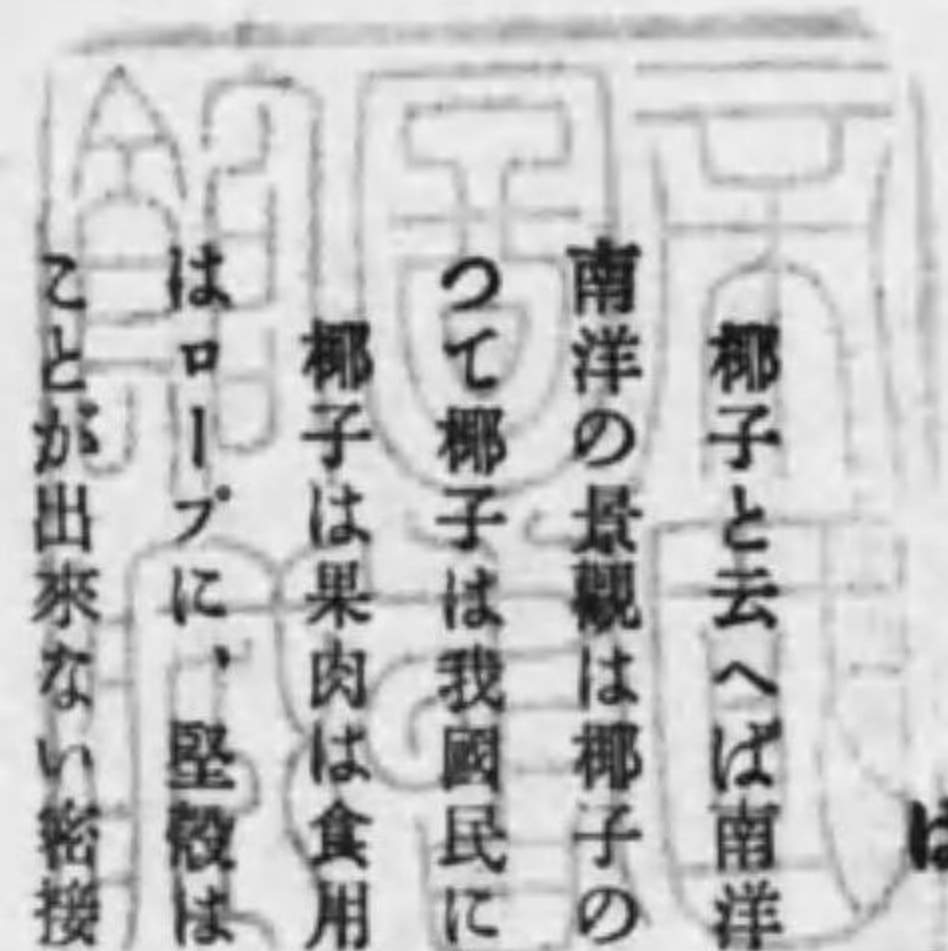 は
椰子と云へば南洋
南洋の景観は椰子の
つて椰子は我國民に
椰子は果肉は食用
はロープに、堅殻は
ことが出來ない密接